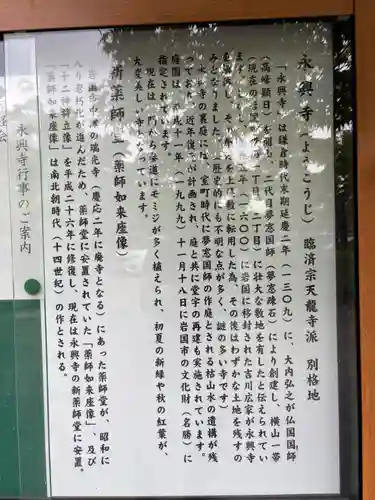 永興寺(ようこうじ) 臨済宗天龍寺派 別格地
「永興寺」は鎌倉時代末期延慶二年(一三〇九)に、大内弘之が仏国国師
(高峰顕日)を開山、二代目夢窓国師(夢窓疎石)により創建し、横山一帯
丁目)に壮大な敷地を有したと伝えられてい
(一六〇〇)に岩国に移封された吉川広家が永興寺
に転用した為、その後はわずかな土地を残すの
みとなりました。(歴史的にも不明な点が多く、謎の多い寺です)
永興寺の裏庭には、室町時代に夢窓国師の作庭とされる枯山水の遺構が残
っており、近年復元が計画され、庭と共に堂宇の再建も実施されています。
庭園は、平成十一年(一九九九)十一月十八日に岩国市の文化財(名勝)に
指定されています。
現在は、門から参道にモミジが多く植えられ、初夏の新緑や秋の紅葉が、
大変美しい寺となっています。
新薬師堂(薬師如来座像)
の瑞光寺(慶応二年に廃寺となる)にあった薬師堂が、昭和に
入り老朽化が進んだため、薬師堂に安置されていた「薬師如来座像」、及び
「十二神将立像」を平成二十六年に修復し、現在は永興寺の新薬師堂に安置。
「薬師如来座像」は南北朝時代(十四世紀)の作とされる。
永興寺行事のご案内